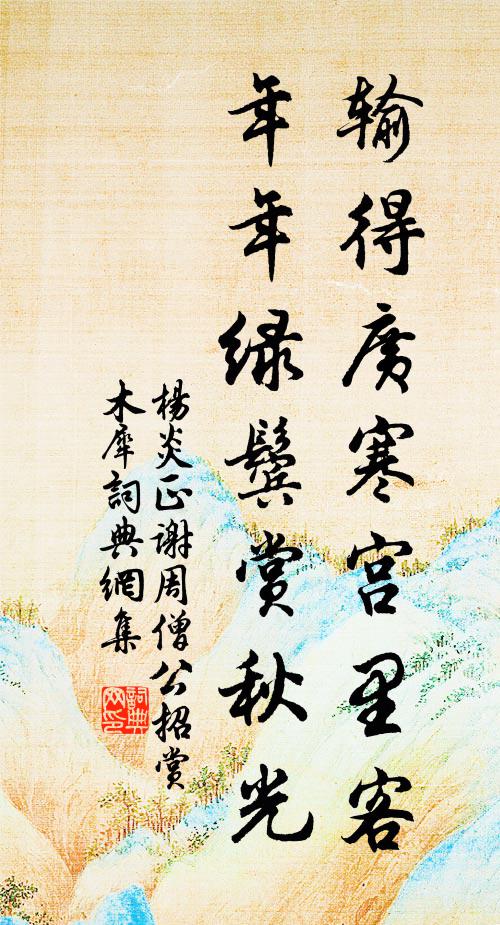 输得廣寒宫里客
年年绿鬓赏秋光
楊炎正谢周僧公招赏
木犀詞典網集
詞典
网印